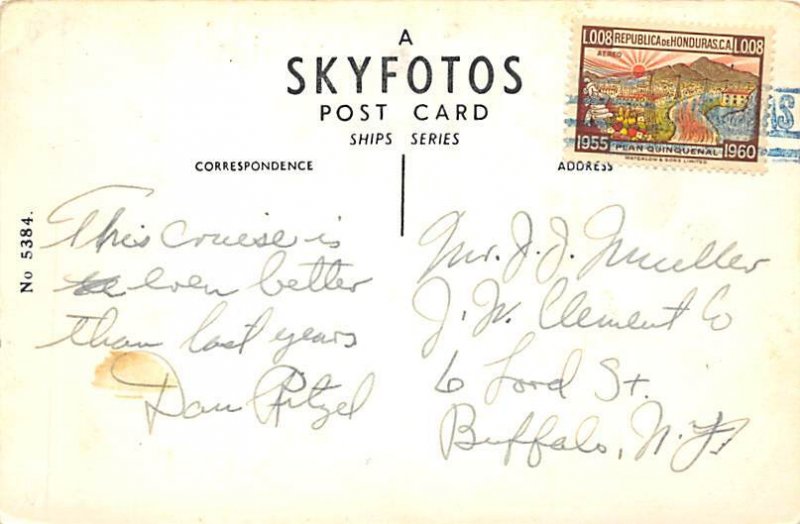 A
SKYFOTOS
POST CARD
SHIPS SERIES
CORRESPONDENCE
ADDRESS
No 5384.
L0.08 REPUBLICA DE HONDURAS, C.A. L0.08
AEREO
1955 PLAN QUINQUENAL 1960
WATERLOW & SONS LIMITED
AS
This cruise is
even better
than last years
Dan Ritzel
Mr. J. J. Mueller
J. W. Clement Co
6 Lord St.
Buffalo, N.Y.